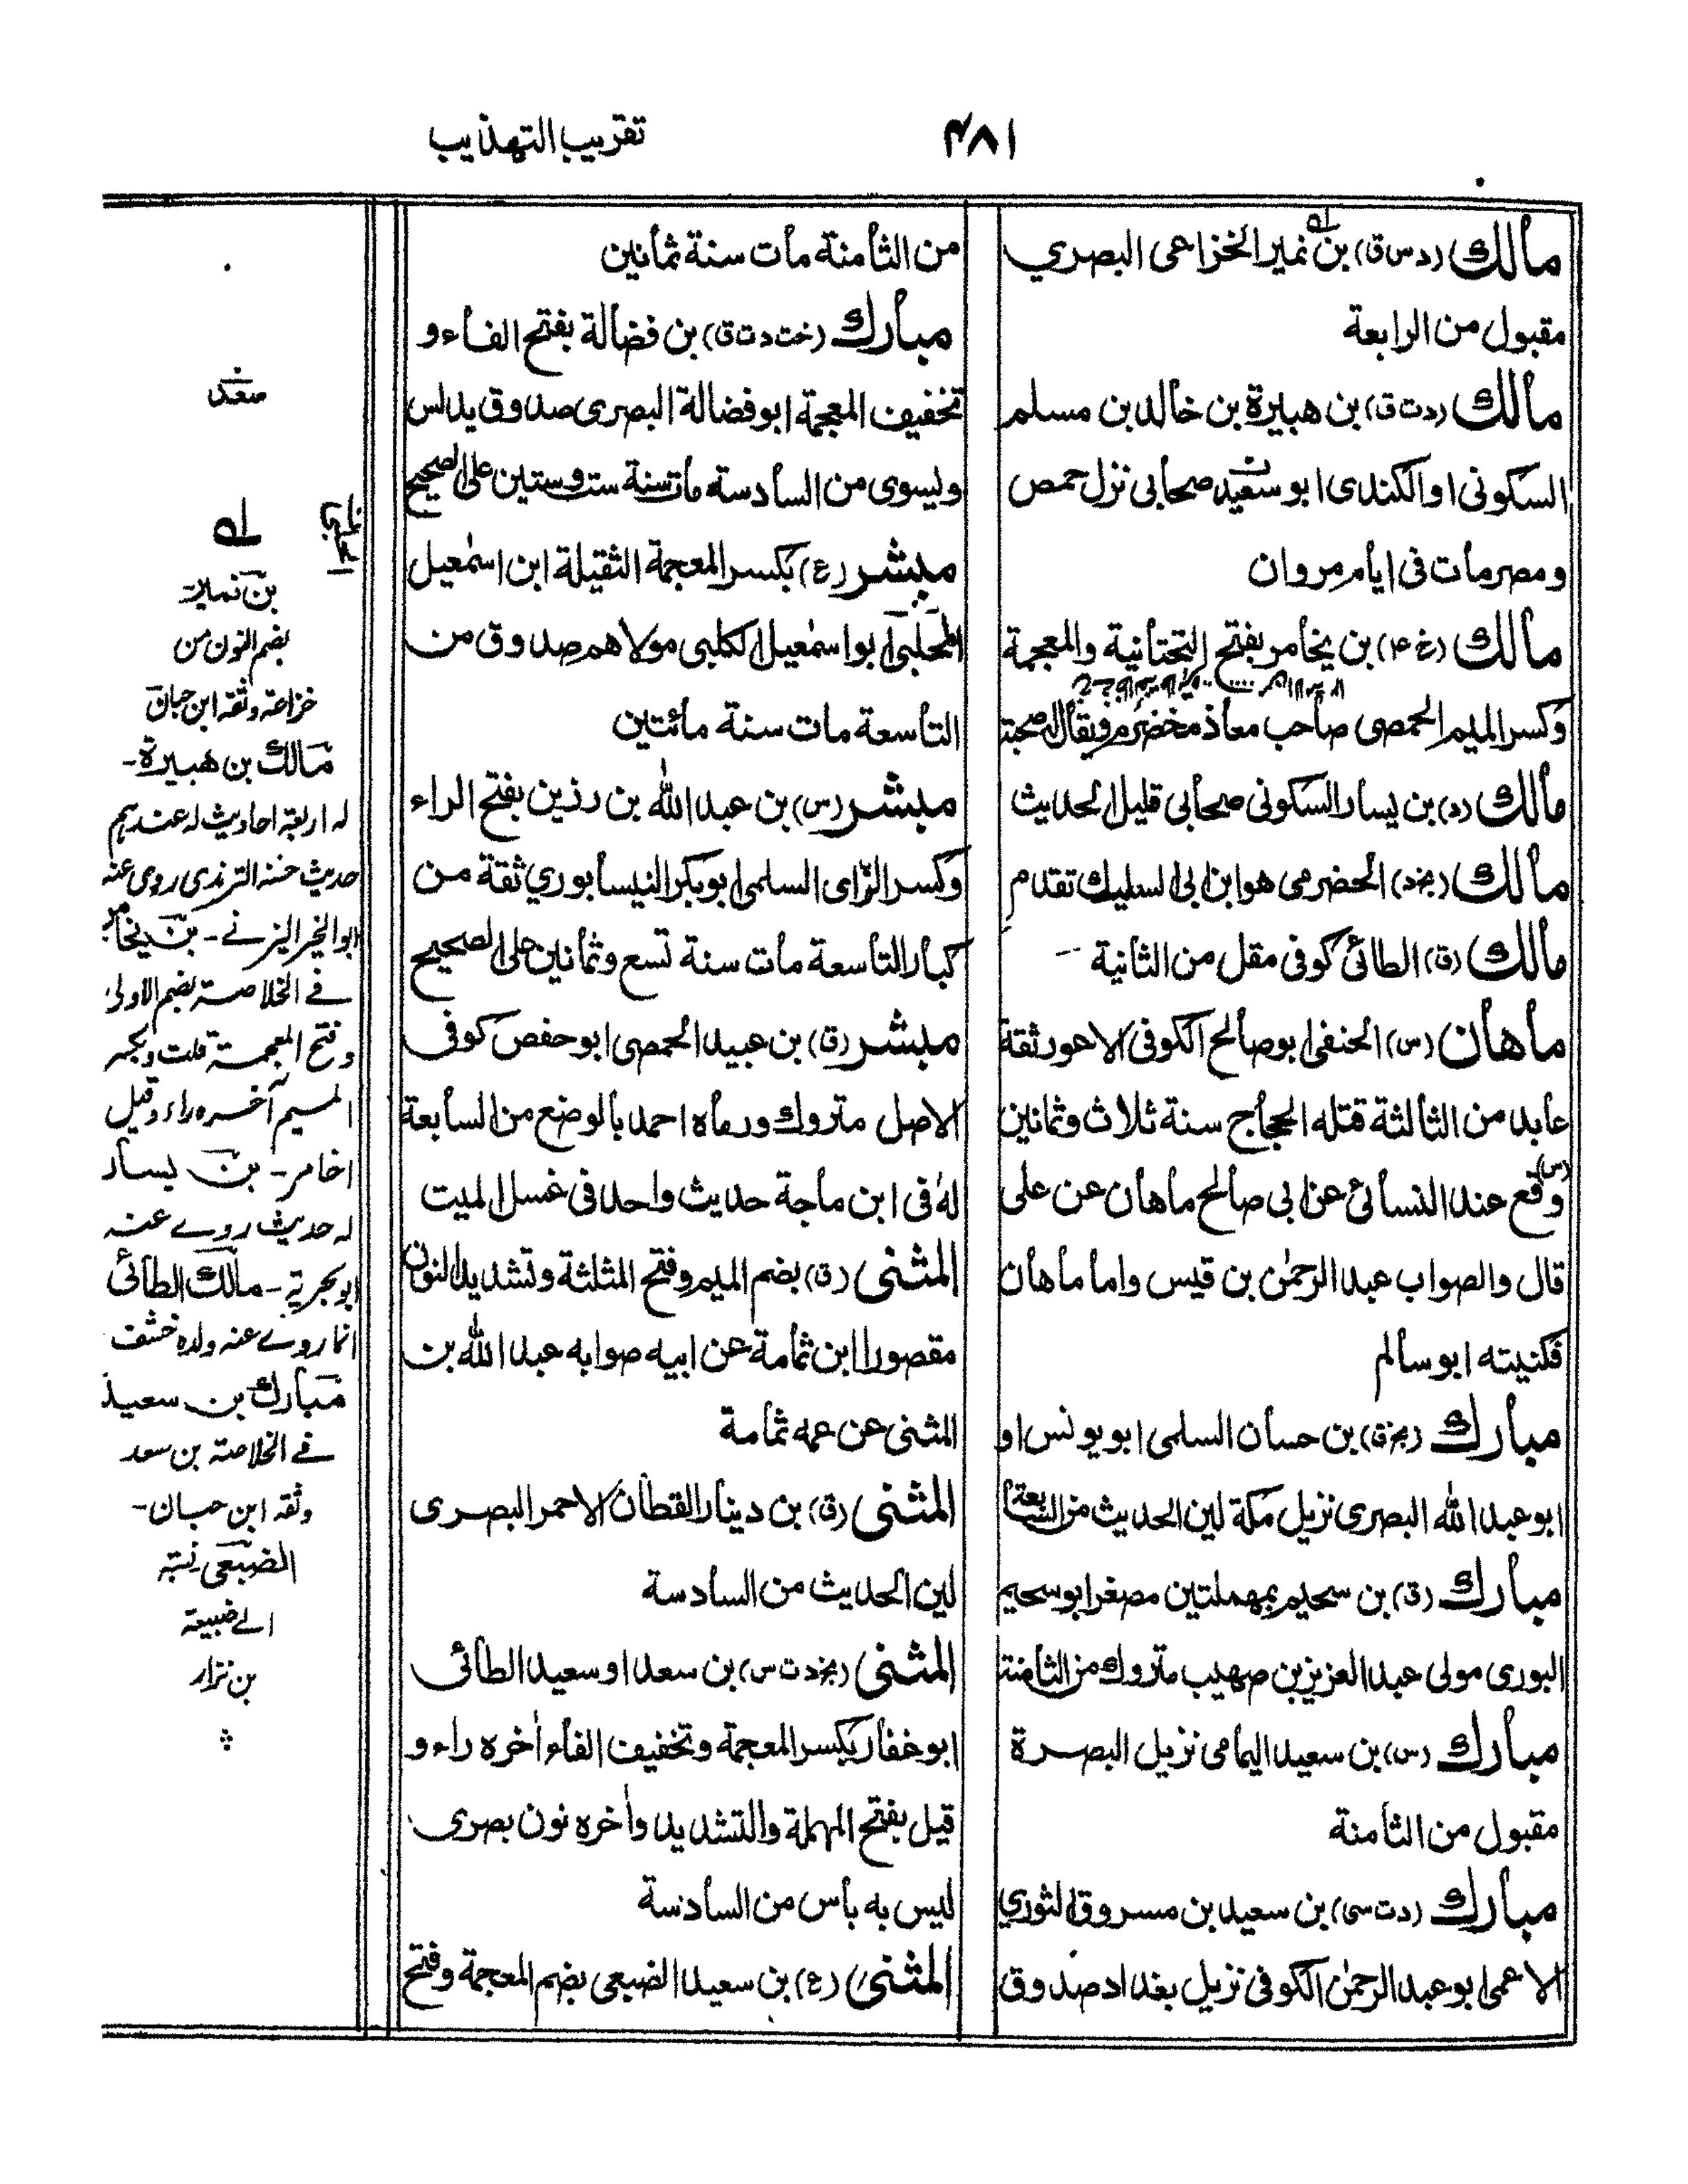 ۴۸۱
تقريب التهذيب
مالك (د س ق) بن نمير الخزاعى البصري
مقبول من الرابعة
مالك (د ت ق) بن هبيرة بن خالد بن مسلم
السكونى او الكندى ابو سعيد صحابى نزل حمص
ومصر مات فى ايام مروان
مالك (خ ۴) بن يخامر بفتح التحتانية والمعجمة
وكسر الميم الحمصى صاحب معاذ مخضرم ويقال له صحبة
مالك (د) بن يسار السكونى صحابى قليل الحديث
مالك (بخ د) الحضرمى هو ابن ابى السليك تقدم
مالك (ق) الطائى كوفى مقل من الثانية
ماهان (س) الحنفى ابو صالح الكوفى الاعور ثقة
عابد من الثالثة قتله الحجاج سنة ثلاث وثمانين
(س) وقع عند النسائى عن ابى صالح ماهان عن على
قال والصواب عبد الرحمٰن بن قيس واما ماهان
فكنيته ابو سالم
مبارك (بخ ق) بن حسان السلمى ابو يونس او
ابو عبد الله البصرى نزيل مكة لين الحديث من السابعة
مبارك (ق) بن سحيم بمهملتين مصغر ابو سحيم
البورى مولى عبد العزيز بن صهيب متروك من الثامنة
مبارك (س) بن سعيد اليمامى نزيل البصرة
مقبول من الثامنة
مبارك (د ت سى) بن سعيد بن مسروق الثوري
الاعمى ابو عبد الرحمٰن الكوفى نزيل بغداد صدوق
من الثامنة مات سنة ثمانين
مبارك (خت د ت ق) بن فضالة بفتح الفاء و
تخفيف المعجمة ابو فضالة البصرى صدوق يدلس
ويسوى من السادسة مات سنة ست وستين على الصحيح
مبشر (ع) بكسر المعجمة الثقيلة ابن اسمٰعيل
الحلبى ابو اسمٰعيل الكلبى مولاهم صدوق من
التاسعة مات سنة مائتين
مبشر (س) بن عبد الله بن رزين بفتح الراء
وكسر الزاى السلمى ابو بكر النيسابوري ثقة من
كبار التاسعة مات سنة تسع وثمانين على الصحيح
مبشر (ق) بن عبيد الحمصى ابو حفص كوفى
الاصل متروك ورماه احمد بالوضع من السابعة
له فى ابن ماجة حديث واحد فى غسل الميت
المثنى (ق) بضم الميم وفتح المثلثة وتشديد النون
مقصورا ابن ثمامة عن ابيه صوابه عبد الله بن
المثنى عن عمه ثمامة
المثنى (ق) بن دينار القطان الاحمر البصرى
لين الحديث من السادسة
المثنى (بخ د ت س) بن سعد او سعيد الطائى
ابو غفار بكسر المعجمة وتخفيف الفاء أخره راء و
قيل بفتح المهملة والتشديد وأخره نون بصرى
ليس به باس من السادسة
المثنى (ع) بن سعيد الضبعى بضم المعجمة وفتح
سعد
له
بن نمير
بضم النون من
خزاعة وثقه ابن حبان
مالك بن هبيرة-
له اربعة احاديث له عندهم
حديث حسنه الترمذى روى عنه
ابو الخير اليزنے - بن يخامر
فے الخلاصة بضم الاولى
وفتح المعجمة قلت وبكسر
الميم آخره راء وقيل
اخامر- بن يسار
له حديث روے عنه
ابو بحرية - مالك الطائى
انما روے عنه ولده خشف
مبارك بن سعيد
فے الخلاصة بن سعد
وثقه ابن حبان-
الضبعى نسبة
الے ضبيعة
بن نزار